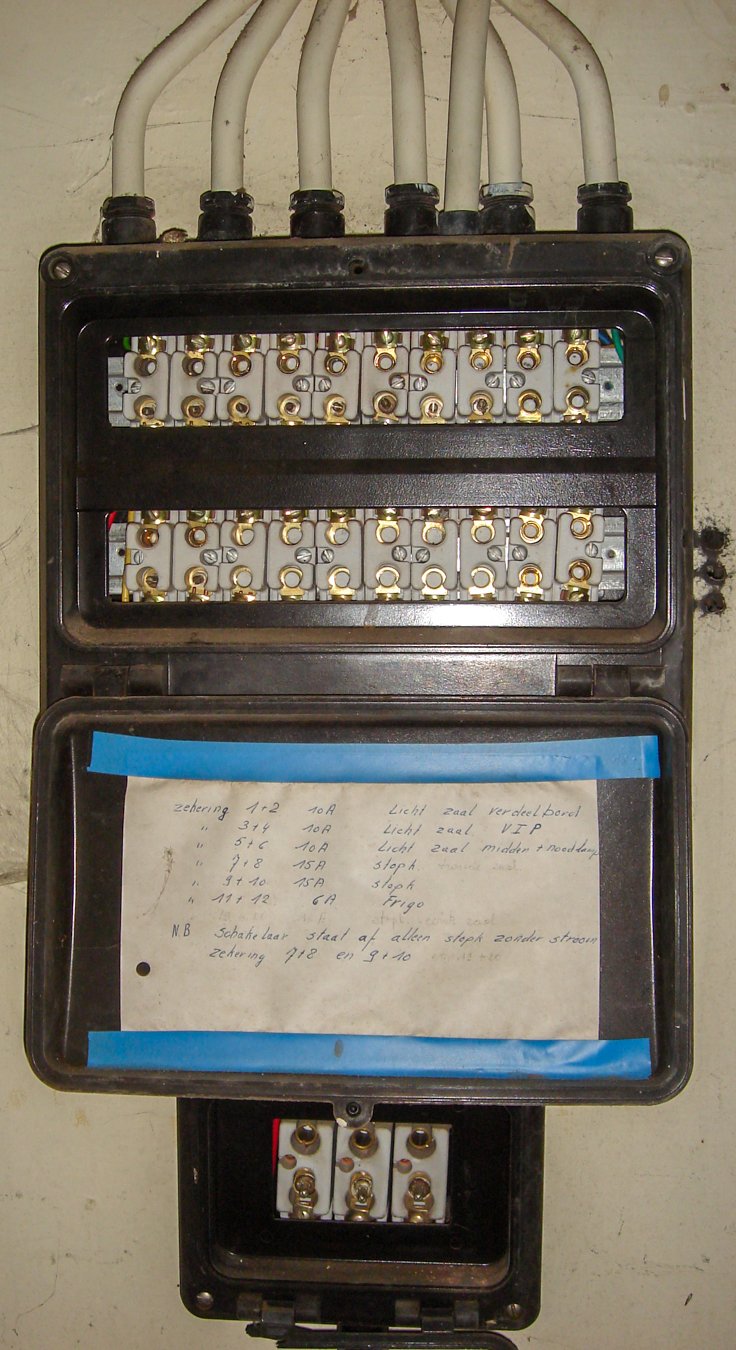 zekering 1+2 10A Licht zaal verdeelbord
" 3+4 10A Licht zaal VIP
" 5+6 10A Licht zaal midden + noodlamp
" 7+8 15A stopk
" 9+10 15A stopk
" 11+12 6A Frigo
N.B Schakelaar staat af alleen stopk zonder stroom
zekering 7+8 en 9+10